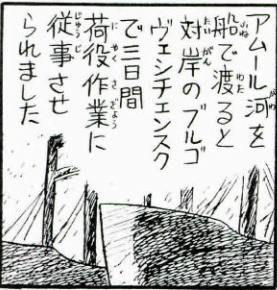 アムール河を
船で渡ると
対岸のブルゴ
ヴェシチェンスク
で三日間
荷役作業に
従事させ
られました